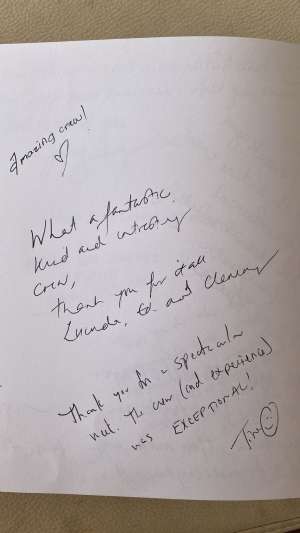 Amazing crew!
What a fantastic,
kind and interesting
crew,
thank you for it all
Lucinda, Ed and Clemency
Thank you for a spectacular
week. The crew (and experience)
was EXCEPTIONAL!